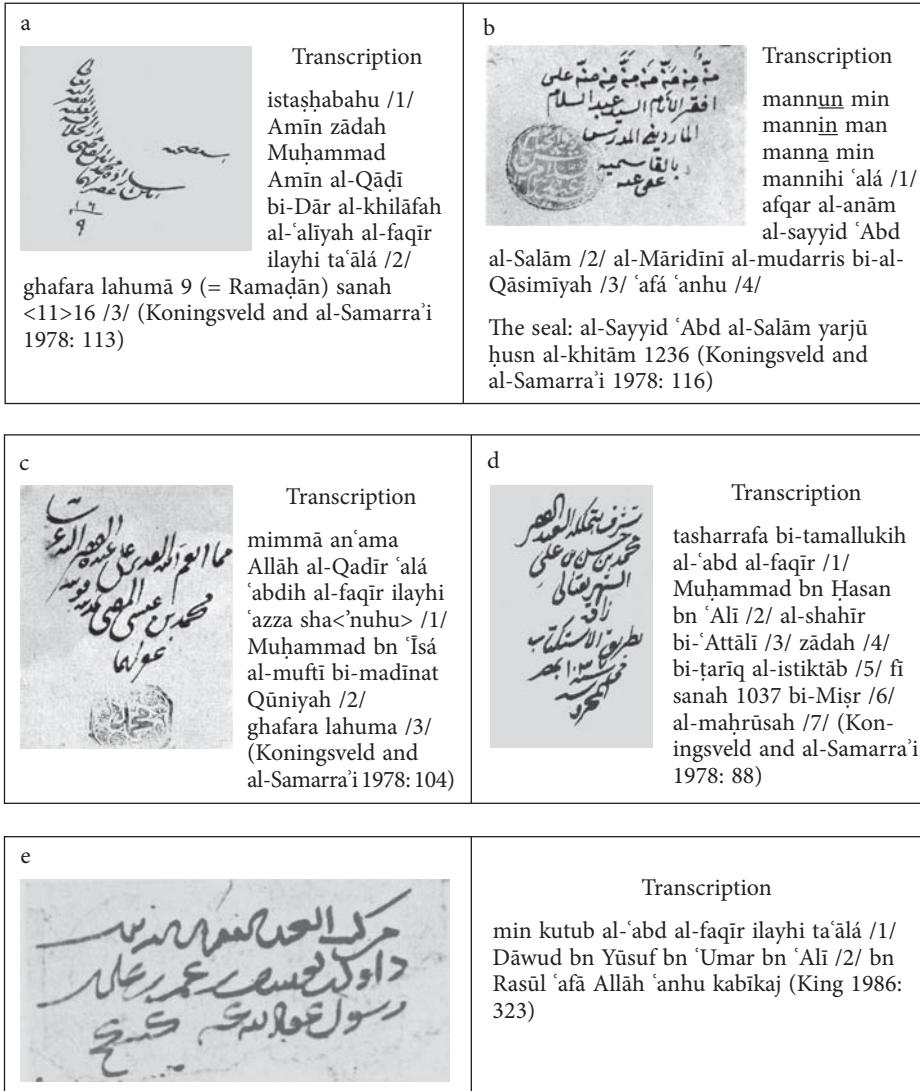 a
Transcription
istaṣḥabahu /1/
Amīn zādah
Muḥammad
Amīn al-Qāḍī
bi-Dār al-khilāfah
al-ʿalīyah al-faqīr
ilayhi taʿālá /2/
ghafara lahumā 9 (= Ramaḍān) sanah
<11>16 /3/ (Koningsveld and al-Samarraʾi
1978: 113)
b
من من من من من من منه على
افقر الأنام السيد عبد السلام
الماردينى المدرس
بالقاسميه
عفى عنه
Transcription
mannun min
mannin man
manna min
mannihi ʿalá /1/
afqar al-anām
al-sayyid ʿAbd
al-Salām /2/ al-Māridīnī al-mudarris bi-al-
Qāsimīyah /3/ ʿafá ʿanhu /4/
The seal: al-Sayyid ʿAbd al-Salām yarjū
ḥusn al-khitām 1236 (Koningsveld and
al-Samarraʾi 1978: 116)
c
Transcription
mimmā anʿama
Allāh al-Qadīr ʿalá
ʿabdih al-faqīr ilayhi
ʿazza sha<ʾnuhu> /1/
Muḥammad bn ʿĪsá
al-muftī bi-madīnat
Qūniyah /2/
ghafara lahuma /3/
(Koningsveld and
al-Samarraʾi 1978: 104)
d
تشرف بتملكه العبد الفقير
محمد بن حسن بن على
الشهير بعتالى
زاده
بطريق الاستكتاب
Transcription
tasharrafa bi-tamallukih
al-ʿabd al-faqīr /1/
Muḥammad bn Ḥasan
bn ʿAlī /2/ al-shahīr
bi-ʿAttālī /3/ zādah /4/
bi-ṭarīq al-istiktāb /5/ fī
sanah 1037 bi-Miṣr /6/
al-maḥrūsah /7/ (Kon-
ingsveld and al-Samarraʾi
1978: 88)
e
داود بن يوسف بن عمر بن على
رسول عفا الله عنه كبيكج
Transcription
min kutub al-ʿabd al-faqīr ilayhi taʿālá /1/
Dāwud bn Yūsuf bn ʿUmar bn ʿAlī /2/ bn
Rasūl ʿafā Allāh ʿanhu kabīkaj (King 1986:
323)